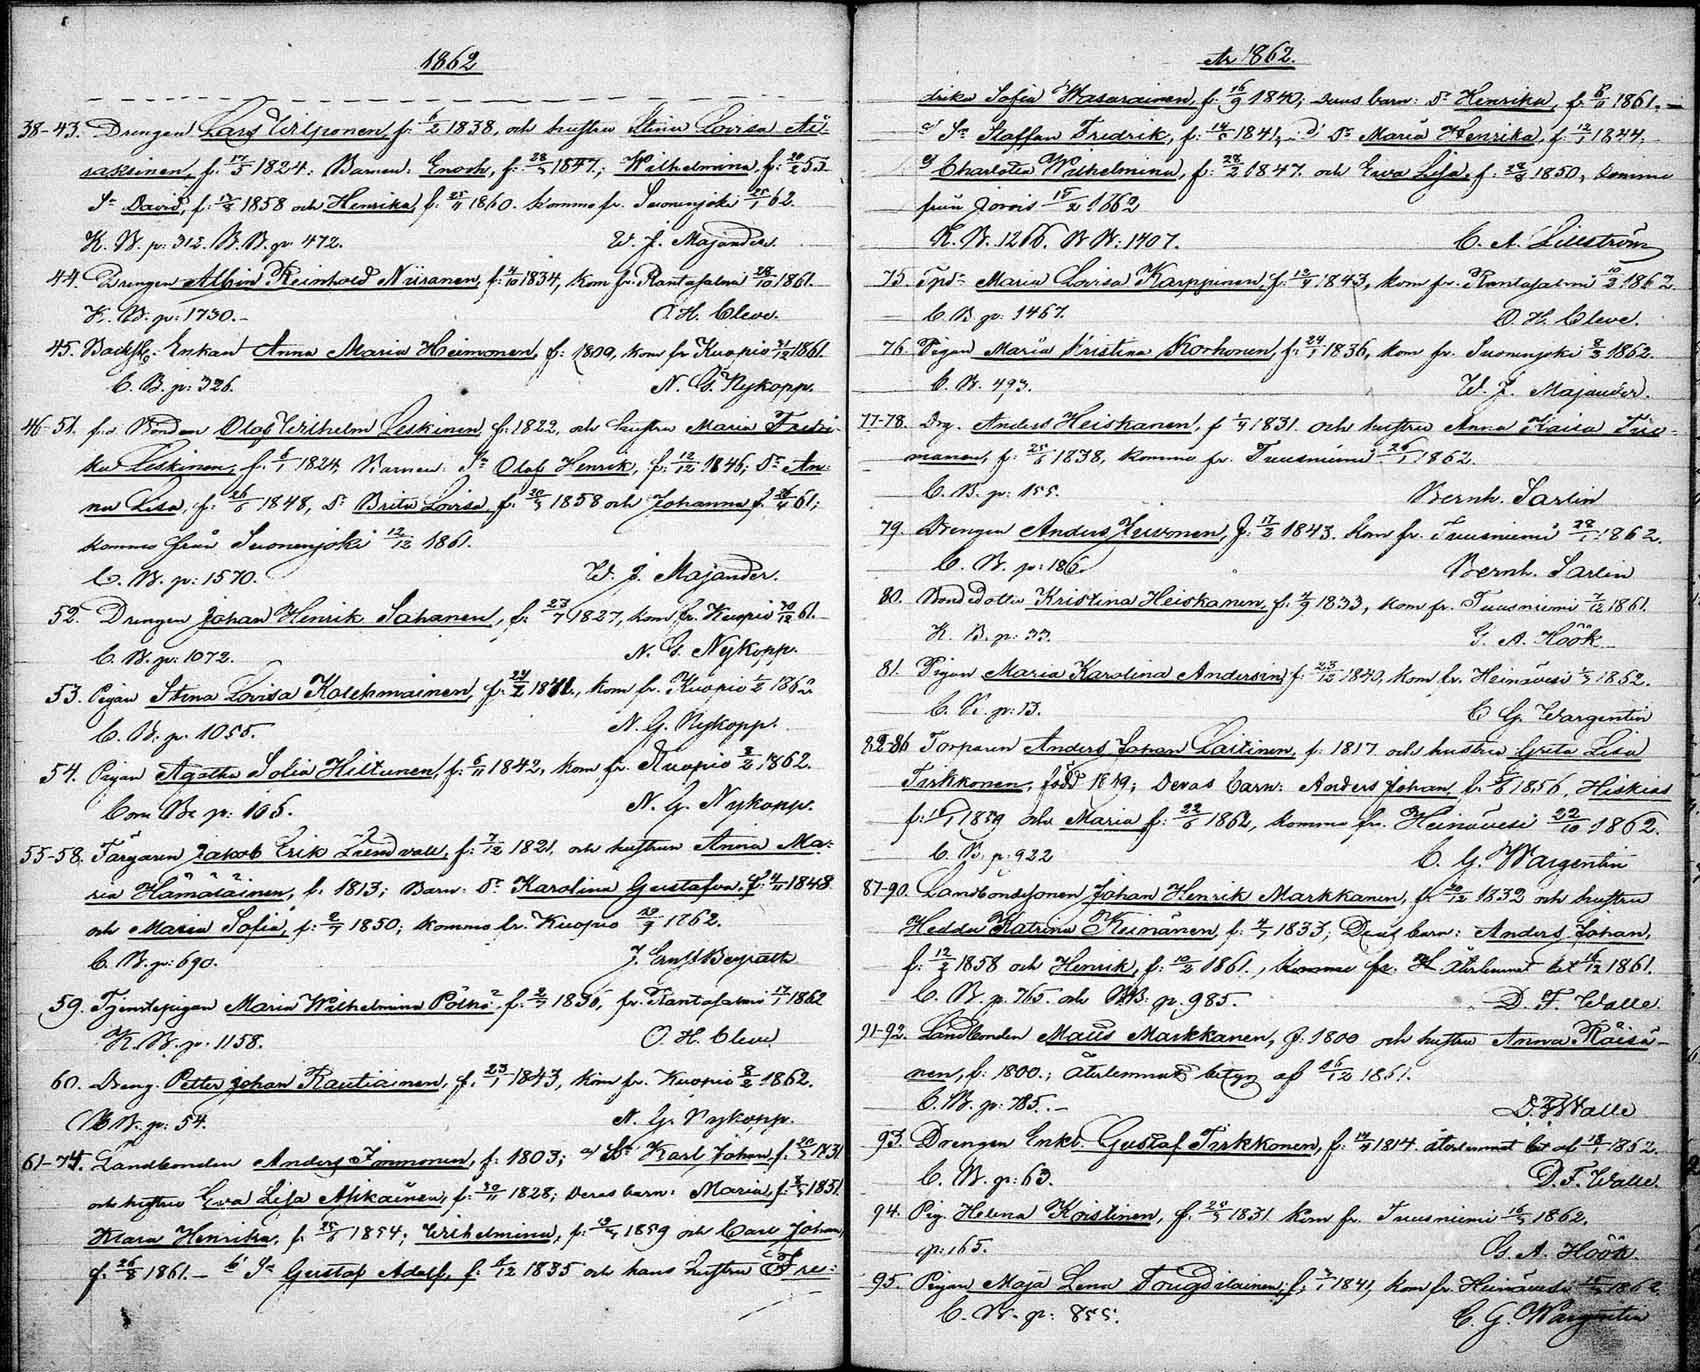 1862
38-43. Drengen Lars Wilponen, f. 1/2 1838, och hustru Stina Lovisa
saksinen, f. 17/5 1824. Barnen: Enoch, f. 28/5 1847; Wilhelmina, f. 20/2 53
Sn David, f. 1858 och Henrika, f. 25/11 1860. komma fr. Suonenjoki 25/1 62.
K. B. p: 312. B. B. p. 472. W. J. Majander.
44. Drengen Albin Reinhold Niiranen, f. 4/10 1834, kom fr. Rantasalmi 28/10 1861.
K. B. p: 1730. O. H. Cleve.
45. Enkan Anna Maria Heimonen, f: 1809, kom fr Kuopio 1861.
C. B. p: 326. N. G. Nykopp.
46-51. f.d. Bonden Olof Wilhelm Leskinen, f. 1822, och hustru Maria Fredri-
ka Leskinen, f. 6/1 1824. Barnen: Sn Olof Henrik, f. 12/12 1846; Dr An-
na Lisa, f. 26/6 1848, Dr Brita Lovisa f. 20/3 1858 och Johanna f. 61;
komma från Suonenjoki 12/12 1861.
C. B. p: 1570. W. J. Majander.
52. Drengen Johan Henrik Sahanen, f. 23/7 1827, kom fr. Kuopio 61.
C. B. p: 1072. N. G. Nykopp.
53. Pigan Stina Lovisa Kolehmainen, f. kom fr. Kuopio 1/2 1862
C. B. p. 1055. N. G. Nykopp.
54. Pigan Agatha Sofia Hiltunen, f. 6/11 1842, kom fr. Kuopio 2/2 1862.
Com. B. p: 105. N. G. Nykopp.
55-58. Färgaren Jakob Erik Lundvall, f. 7/12 1821, och hustrun Anna Ma-
ria Hämäläinen, f. 1813; Barn: Dr Karolina Gustafva, f. 1848
och Maria Sofia, f. 1850; komma fr. Kuopio 1862.
C. B. p: 690. J. Ernst Beyrath
59. Tjenstepigan Maria Wilhelmina Pölkö f. 1836, fr. Rantasalmi 17/1 1862
K. B. p. 1158. O. H. Cleve
60. Dreng. Petter Johan Rautiainen, f. 23/1 1843, kom fr. Kuopio 8/2 1862.
B. p: 54. N. G. Nykopp.
61-74. Landbonden Anders Immonen, f. 1803; a) Sn Karl Johan, f. 20/5 1831
och hustru Eva Lisa Asikainen, f. 30/11 1828; Deras barn: Maria, f. 1851.
Klara Henrika, f. 1854; Wilhelmina, f. 1859 och Carl Johan,
f. 26/8 1861. – b) Sn Gustaf Adolf, f. 6/12 1835 och hans hustru Fre-
År 1862.
drika Sofia Wasarainen, f. 16/9 1840, deras barn: Dr Henrika, f. 1861. –
c) Sn Staffan Fredrik, f. 1841, d) Dr Maria Henrika, f. 12/1 1844,
e) Charlotta Wilhelmina, f. 28/2 1847. och Eva Lisa, f. 1850, komma
från Jorois 1862
K. B. 1266. B B. 1407. C. A. Lillström
75. Maria Lovisa Karppinen, f. 1843, kom fr. Rantasalmi 10/2 1862
C. B. p: 1467. O. H. Cleve.
76. Pigan Maria Kristina Korhonen, f. 24/1 1836, kom fr. Suonenjoki 1862.
C. B. 493. W. J. Majander.
77-78. Drg. Anders Heiskanen, f 1831. och hustru Anna Kaisa
manen, f. 25/6 1838, komma fr. Tuusniemi 26/1 1862.
C. B. p: 155. Bernh. Sarlin
79. Drengen Anders Juvonen, f. 17/2 1843. kom fr. Tuusniemi 28/1 1862.
C. B. p: 186. Bernh. Sarlin
80. Bondedotter Kristina Heiskanen, f. 1833, kom fr. Tuusniemi 7/12 1861.
K. B. p: 33. G. A. Höök
81. Pigan Maria Karolina Andersin, f. 23/12 1840, kom fr. Heinävesi 1862.
C. B. p: 13. C G. Wargentin
82-86 Torparen Anders Johan Laitinen, f. 1817 och hustru Greta Lisa
Tirkkonen, född 1819; Deras barn: Anders Johan, f. 1856, Hiskias
f. 1859 och Maria f. 22/6 1862, komma fr. Heinävesi 22/10 1862.
C. B. p: 922 C. G. Wargentin
87-90. Landbondesonen Johan Henrik Markkanen, f. 20/12 1832 och hustru
Hedda Katrina Keinänen, f. 1833; Deras barn: Anders Johan,
f. 12/2 1858 och Henrik, f. 10/2 1861., återlemnat bet 16/12 1861.
C. B. p. 765. och BB. p. 985. D. F. Walle.
91-92. Landbonden Mats Markkanen, f. 1800 och hustru Anna Räisä-
nen, f. 1800.; återlemnat betyg af 16/12 1861.
C. B. p: 785. – D. F. Walle
93. Drengen Enkl. Gustaf Tirkkonen, f. 1814. återlemnat bet af 1862.
C. B. p: 63. D. F. Walle.
94. Pig. Helena Koistinen, f. 25/5 1831 kom fr. Tuusniemi 1862.
p: 165. G. A. Höök.
95. Pigan Maja Lena f. 1841, kom fr. Heinävesi 1862
C. B. p: 855. C. G. Wargentin